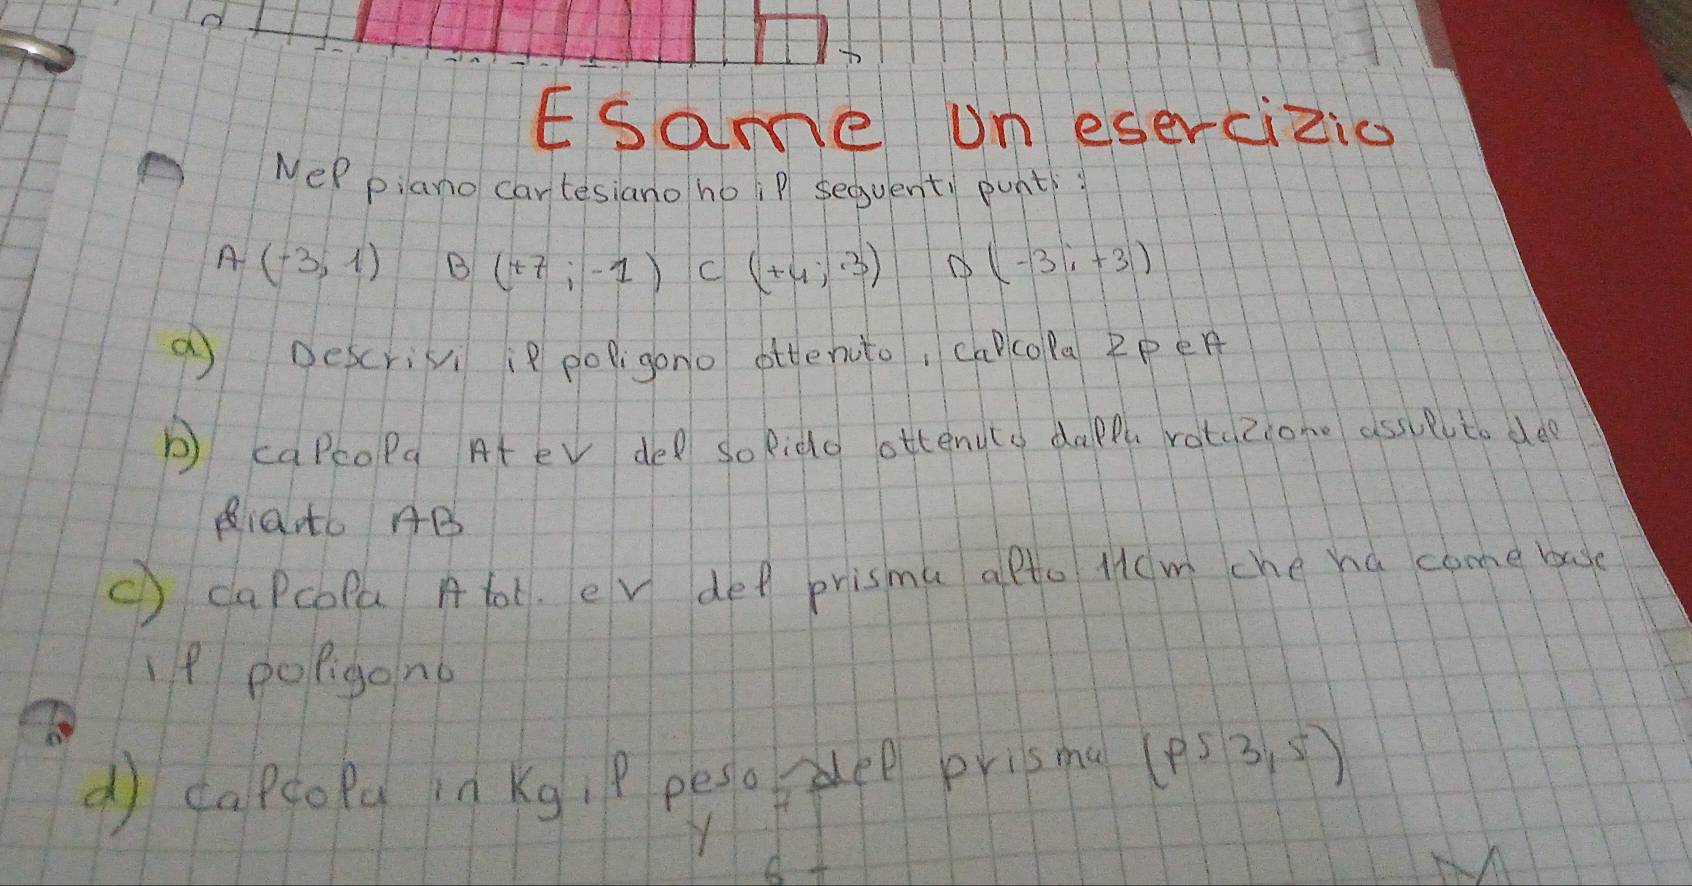 Esame Un esercizio
Nel piano cartesiano ho il seguenti punti:
A (-3; 1) B (+7; -1) C (+4; -3) D (-3; +3)
a) Descrivi il poligono ottenuto, calcola 2p e A
b) calcola At e V del solido ottenuto dalla rotazione assoluto del
lianto AB
c) calcola A tot. e V del prisma alto 11cm che ha come base
il poligono
d) calcola in Kg il peso del prisma (ps 3,5)
y
6